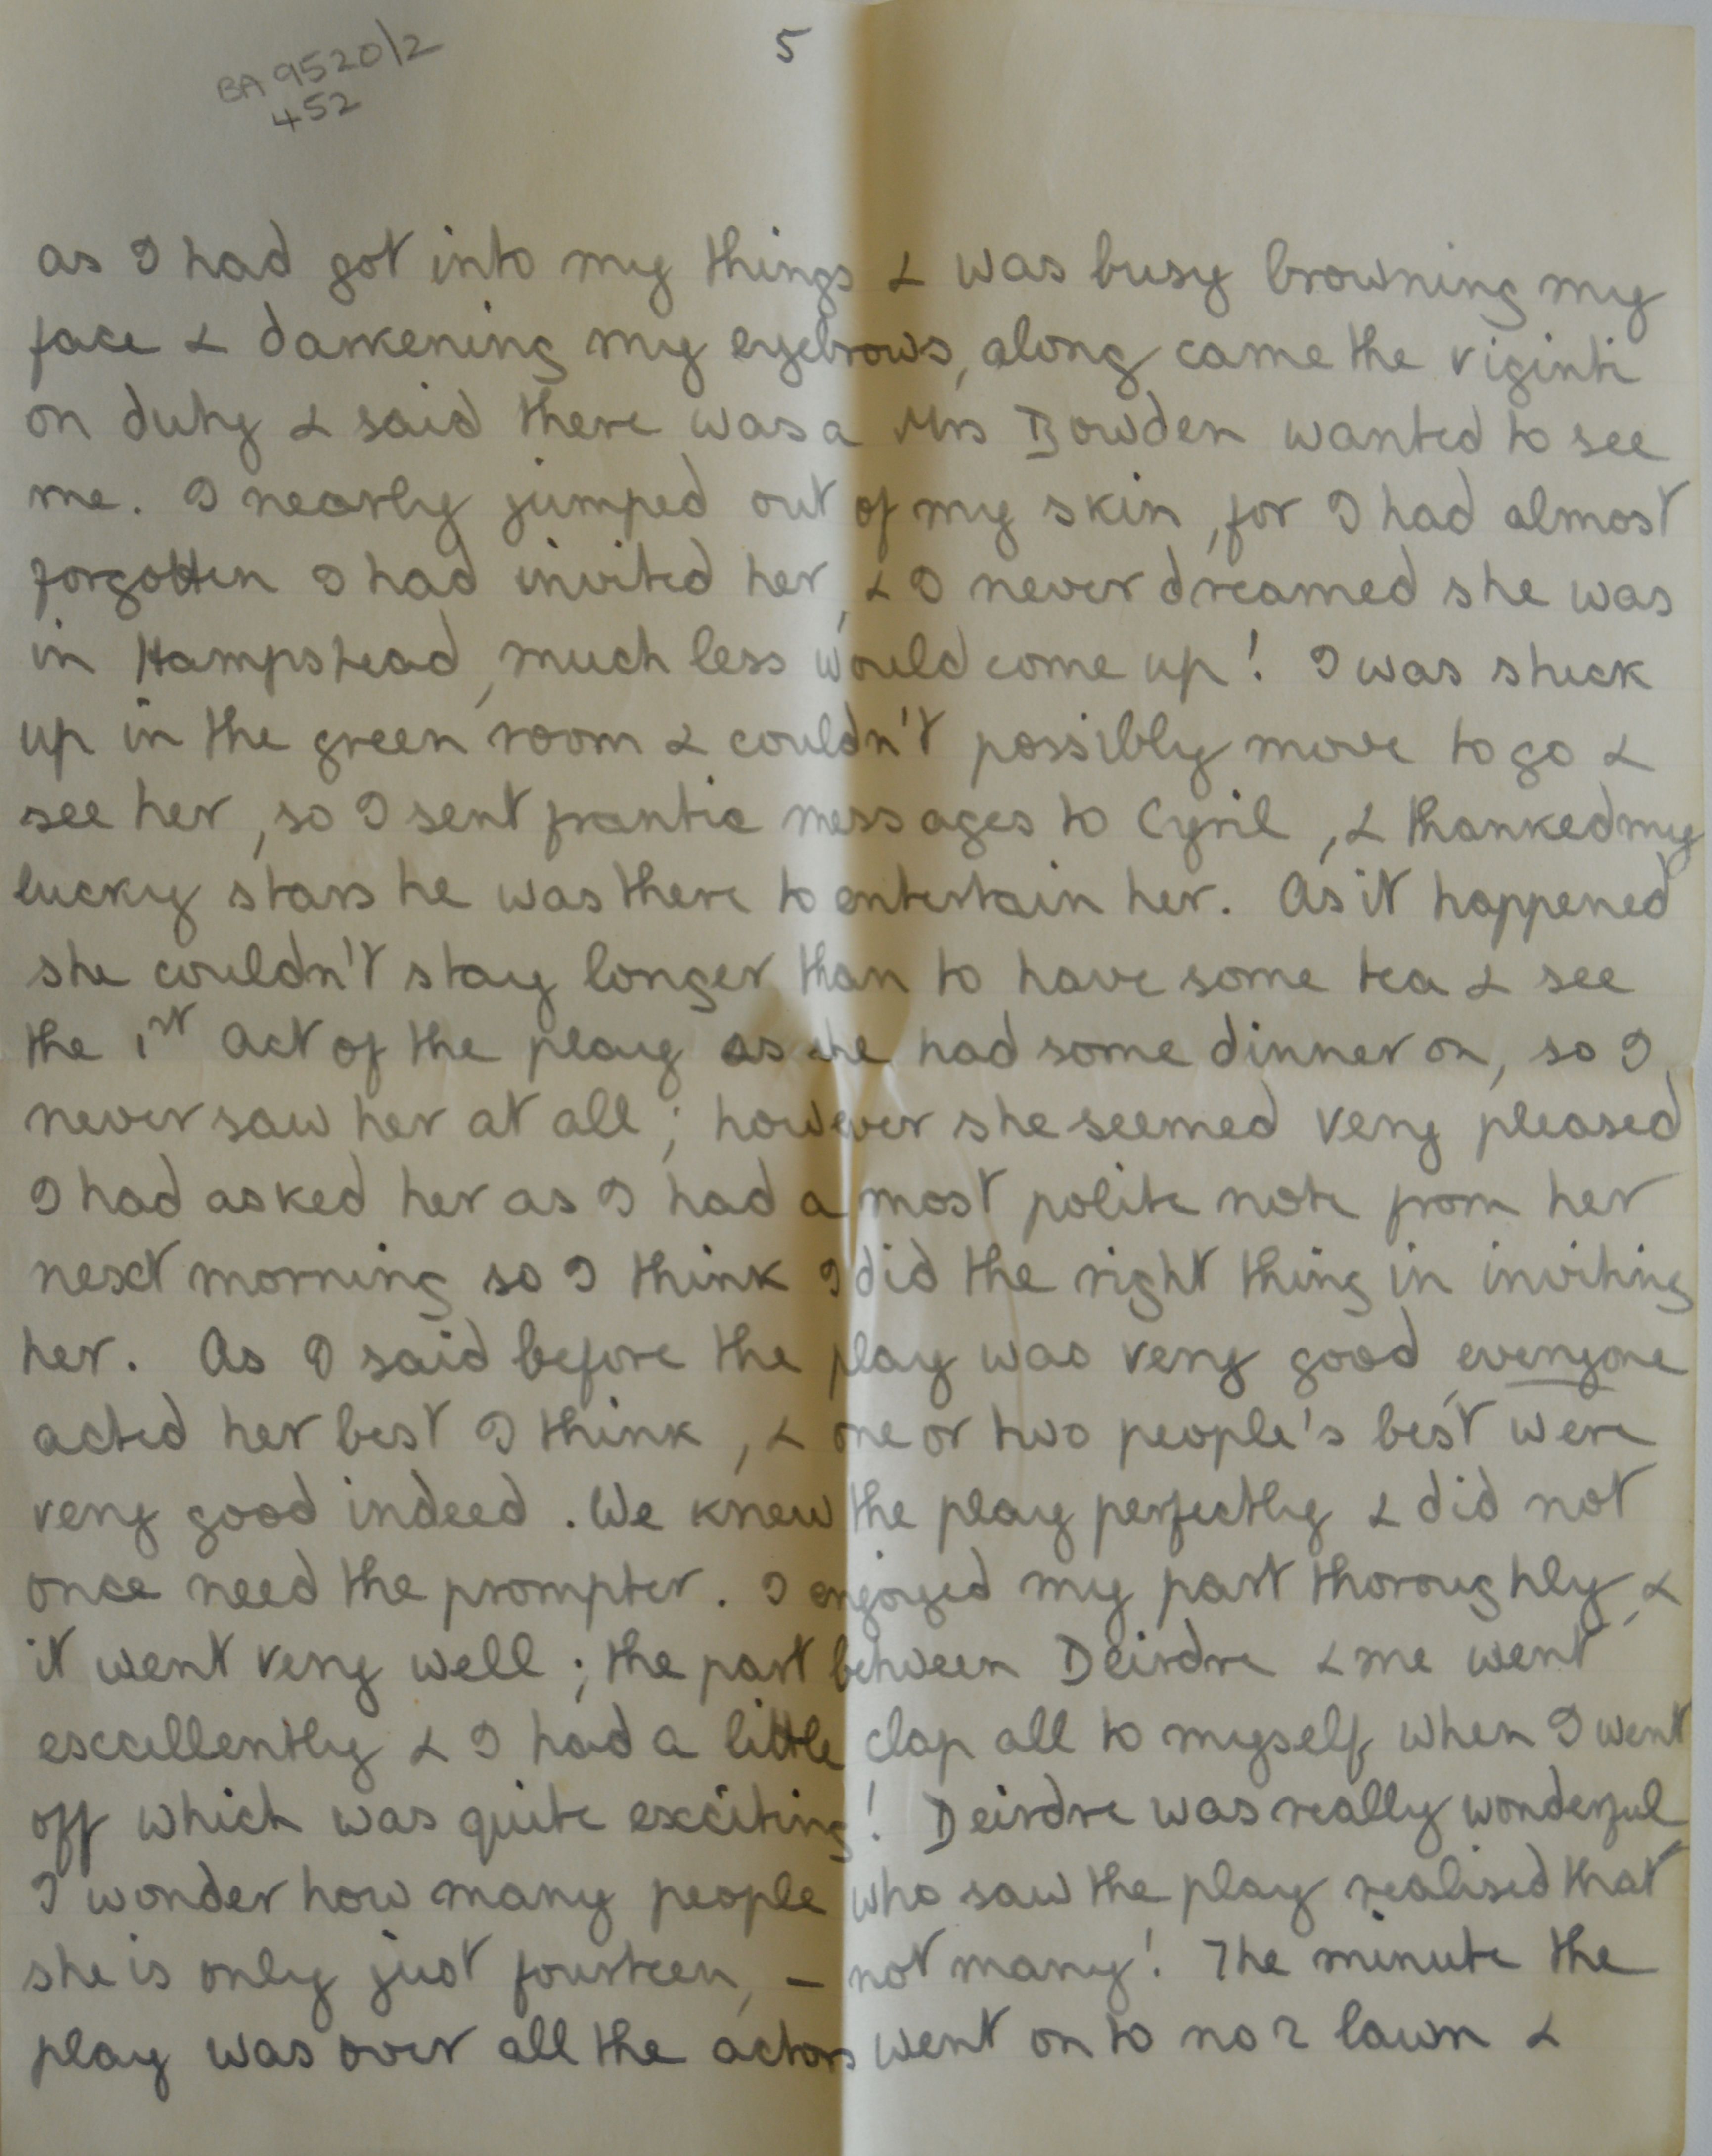 BA 9520/2
452
5
as I had got into my things & was busy browning my
face & darkening my eyebrows, along came the viginti
on duty & said there was a Mrs Bowden wanted to see
me. I nearly jumped out of my skin, for I had almost
forgotten I had invited her, & I never dreamed she was
in Hampstead, much less would come up! I was stuck
up in the green room & couldn't possibly move to go &
see her, so I sent frantic messages to Cyril, & thanked my
lucky stars he was there to entertain her. As it happened
she couldn't stay longer than to have some tea & see
the 1st Act of the play as she had some dinner on, so I
never saw her at all; however she seemed very pleased
I had asked her as I had a most polite note from her
next morning so I think I did the right thing in inviting
her. As I said before the play was very good, everyone
acted her best I think, & one or two people's best were
very good indeed. We knew the play perfectly & did not
once need the prompter. I enjoyed my part thoroughly, &
it went very well; the part between Deirdre & me went
excellently & I had a little clap all to myself when I went
off which was quite exciting! Deirdre was really wonderful
I wonder how many people who saw the play realised that
she is only just fourteen, – not many! The minute the
play was over all the actors went on to no 2 lawn &